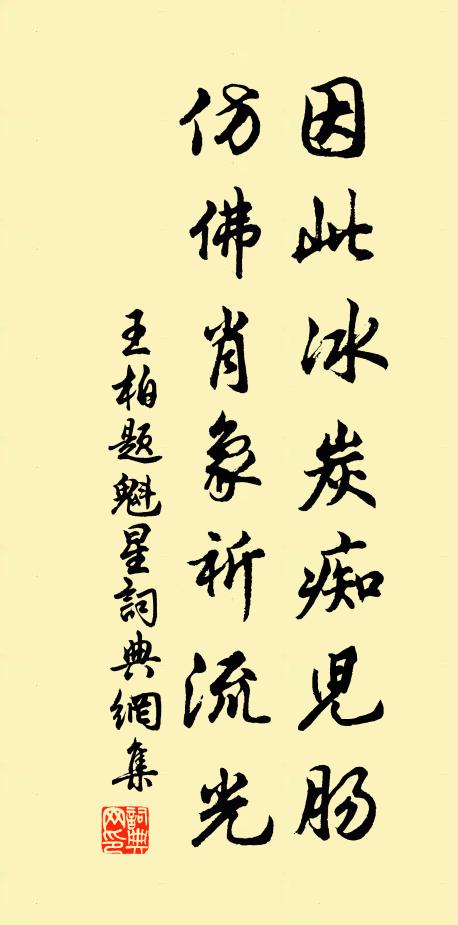 因此冰炭痴児肠
仿佛肖象祈流光
王柏题魁星詞典網集
詞典网印